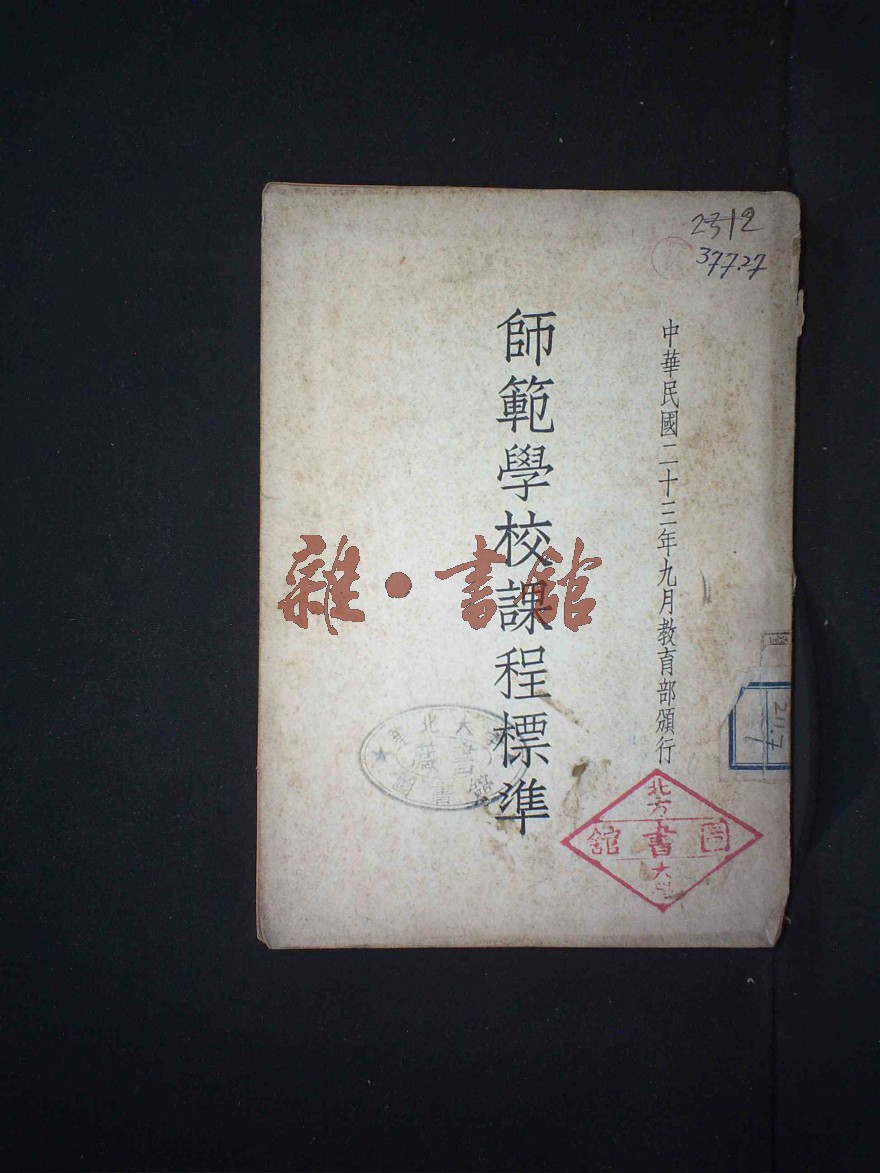 2312
377.27
中華民國二十三年九月教育部頒行
師範學校課程標準
雜·書館
211.7
北方
圖書館
大學
北大
藏書